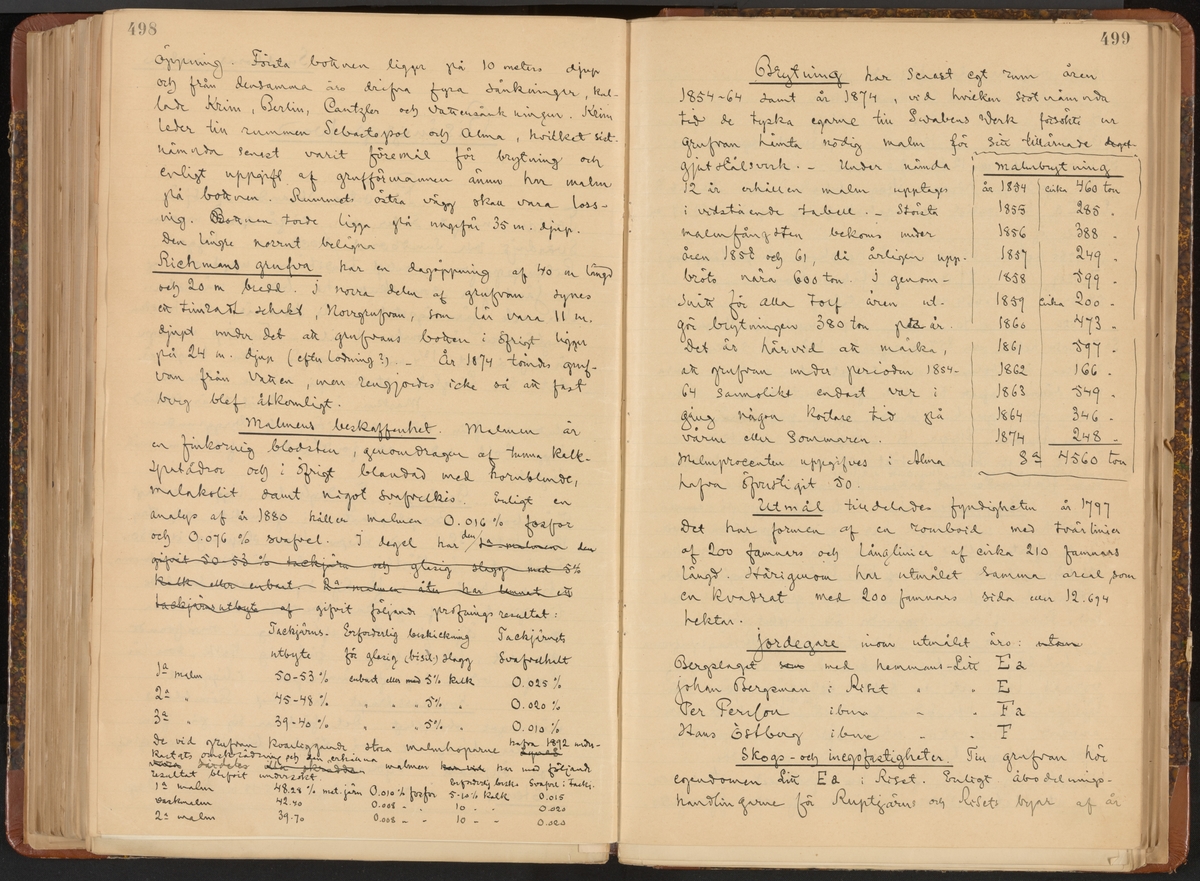 498
öppning. Första bottnen ligger på 10 meters djup
och från densamma äro drifna fyra sänkningar, kal-
lade Krim, Berlin, Cantzler och Vattensänkningen. Krim
leder till rummen Sebastopol och Alma, hvilket sist-
nämnda senast varit föremål för brytning och
enligt uppgift af grufförmannen ännu har malm
på bottnen. Rummets östra vägg skall vara loss-
ning. Bottnen torde ligga på ungefär 35 m. djup.
Den längre norrut belägna
Richmans grufva har en dagöppning af 40 m längd
och 20 m bredd. I norra delen af grufvan synes
ett timradt schakt, Norrgrufvan, som lär vara 11 m.
djupt under det att grufvans botten i öfrigt ligger
på 24 m. djup (efter lodning?). – År 1874 tömdes gruf-
van från vatten, men rengjordes icke så att fast
berg blef åtkomligt.
Malmens beskaffenhet. Malmen är
en finkornig blodsten, genomdragen af tunna kalk-
spatådror och i öfrigt blandad med hornblende,
malakolit samt något svafvelkis. Enligt en
analys af år 1880 håller malmen 0.016 % fosfor
och 0.076 % svafvel. I degel har den 1a malmen den
gifvit 50-53 % tackjärn och glasig slagg med 5%
kalk eller enbart. 2a malmen åter har lemnat ett
tackjärnsutbyte af gifvit följande profningsresultat:
Tackjärns- Erforderlig beskickning Tackjärnets
utbyte för glasig (bisil) slagg Svafvelhalt
1a malm 50-53 % enbart eller med 5% kalk 0.025 %
2a " 45-48 % " " " 5% " 0.020 %
3a " 39-40 % " " " 5% " 0.010 %
De vid grufvan kvarliggande stora malmhoparne hafva 1892 under-
kastats omskrädning och den erhållna malmen har med följande
resultat blifvit undersökt.
Erforderlig besk. Svafvel i tackj.
1a malm 48.28 % met. järn 0.010 % fosfor 5-10% kalk 0.015
vaskmalm 42.40 0.008 " " 10 " " 0.020
2a malm 39.70 0.008 " " 10 " " 0.020
499
Brytning har senast egt rum åren
1854-64 samt år 1874, vid hvilken sistnämnda
tid de tyska egarne till Swabens Werk försökte ur
grufvan hämta nödig malm för sitt tillärnade deget-
gjutstålsverk. – Under nämda
12 år erhållen malm upptages
i vidstående tabell. – Största
malmfångsten bekoms under
åren 1858 och 61, då årligen upp-
bröts nära 600 ton. I genom-
snitt för alla tolf åren ut-
gör brytningen 380 ton pr år.
Det är härvid att märka,
att grufvan under perioden 1854-
64 sannolikt endast var i
gång någon kortare tid på
våren eller sommaren.
Malmprocenten uppgifves i Alma
hafva öfverstigit 50.
Malmbrytning
år 1854 cirka 460 ton
1855 285 "
1856 388 "
1857 249 "
1858 599 "
1859 cirka 200 "
1860 473 "
1861 597 "
1862 166 "
1863 549 "
1864 346 "
1874 248 "
Sa 4560 ton
Utmål tilldelades fyndigheten år 1797
Det har formen af en romboid med tvärlinier
af 200 famnars och långlinier af cirka 210 famnars
längd. Härigenom har utmålet samma areal som
en kvadrat med 200 famnars sida eller 12.694
hektar.
Jordegare inom utmålet äro:
Bergslaget med hemmans-Litt Ea
Johan Bergman i Riset " " E
Per Persson ibm " " Fa
Hans Östberg ibm " " F
Skogs- och inegofastigheter. Till grufvan hör
egendomen Litt Ea i Riset. Enligt åbodelnings-
handlingarne för Ruptjärns och Risets byar af år